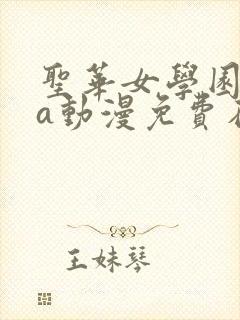 聖華女學園
a動漫免費
王妹琴